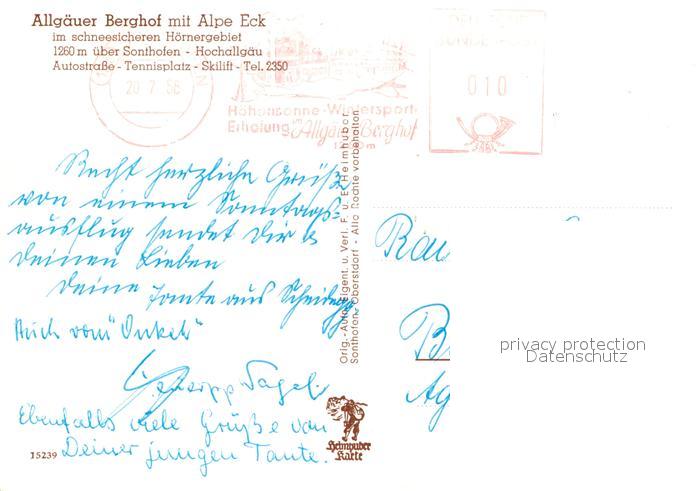 Allgäuer Berghof mit Alpe Eck
im schneesicheren Hörnergebiet
1260 m über Sonthofen - Hochallgäu
Autostraße - Tennisplatz - Skilift - Tel. 2350
20.7.58
Höhensonne-Wintersport-
Erholung im Allgäuer Berghof
DEUTSCHE
BUNDESPOST
010
Recht herzliche Grüße
von einem Sonntags-
ausflug sendet Dir &
deinen Lieben
deine Tante aus Scheidegg
Auch vom "Onkel"
Ebenfalls viele Grüße von
Deiner jungen Tante.
15239
Orig.-Aufn. Eigent. u. Verl. F. u. E. Heimhuber
Sonthofen, Oberstdorf - Alle Rechte vorbehalten
Heimhuber
Karte
privacy protection
Datenschutz